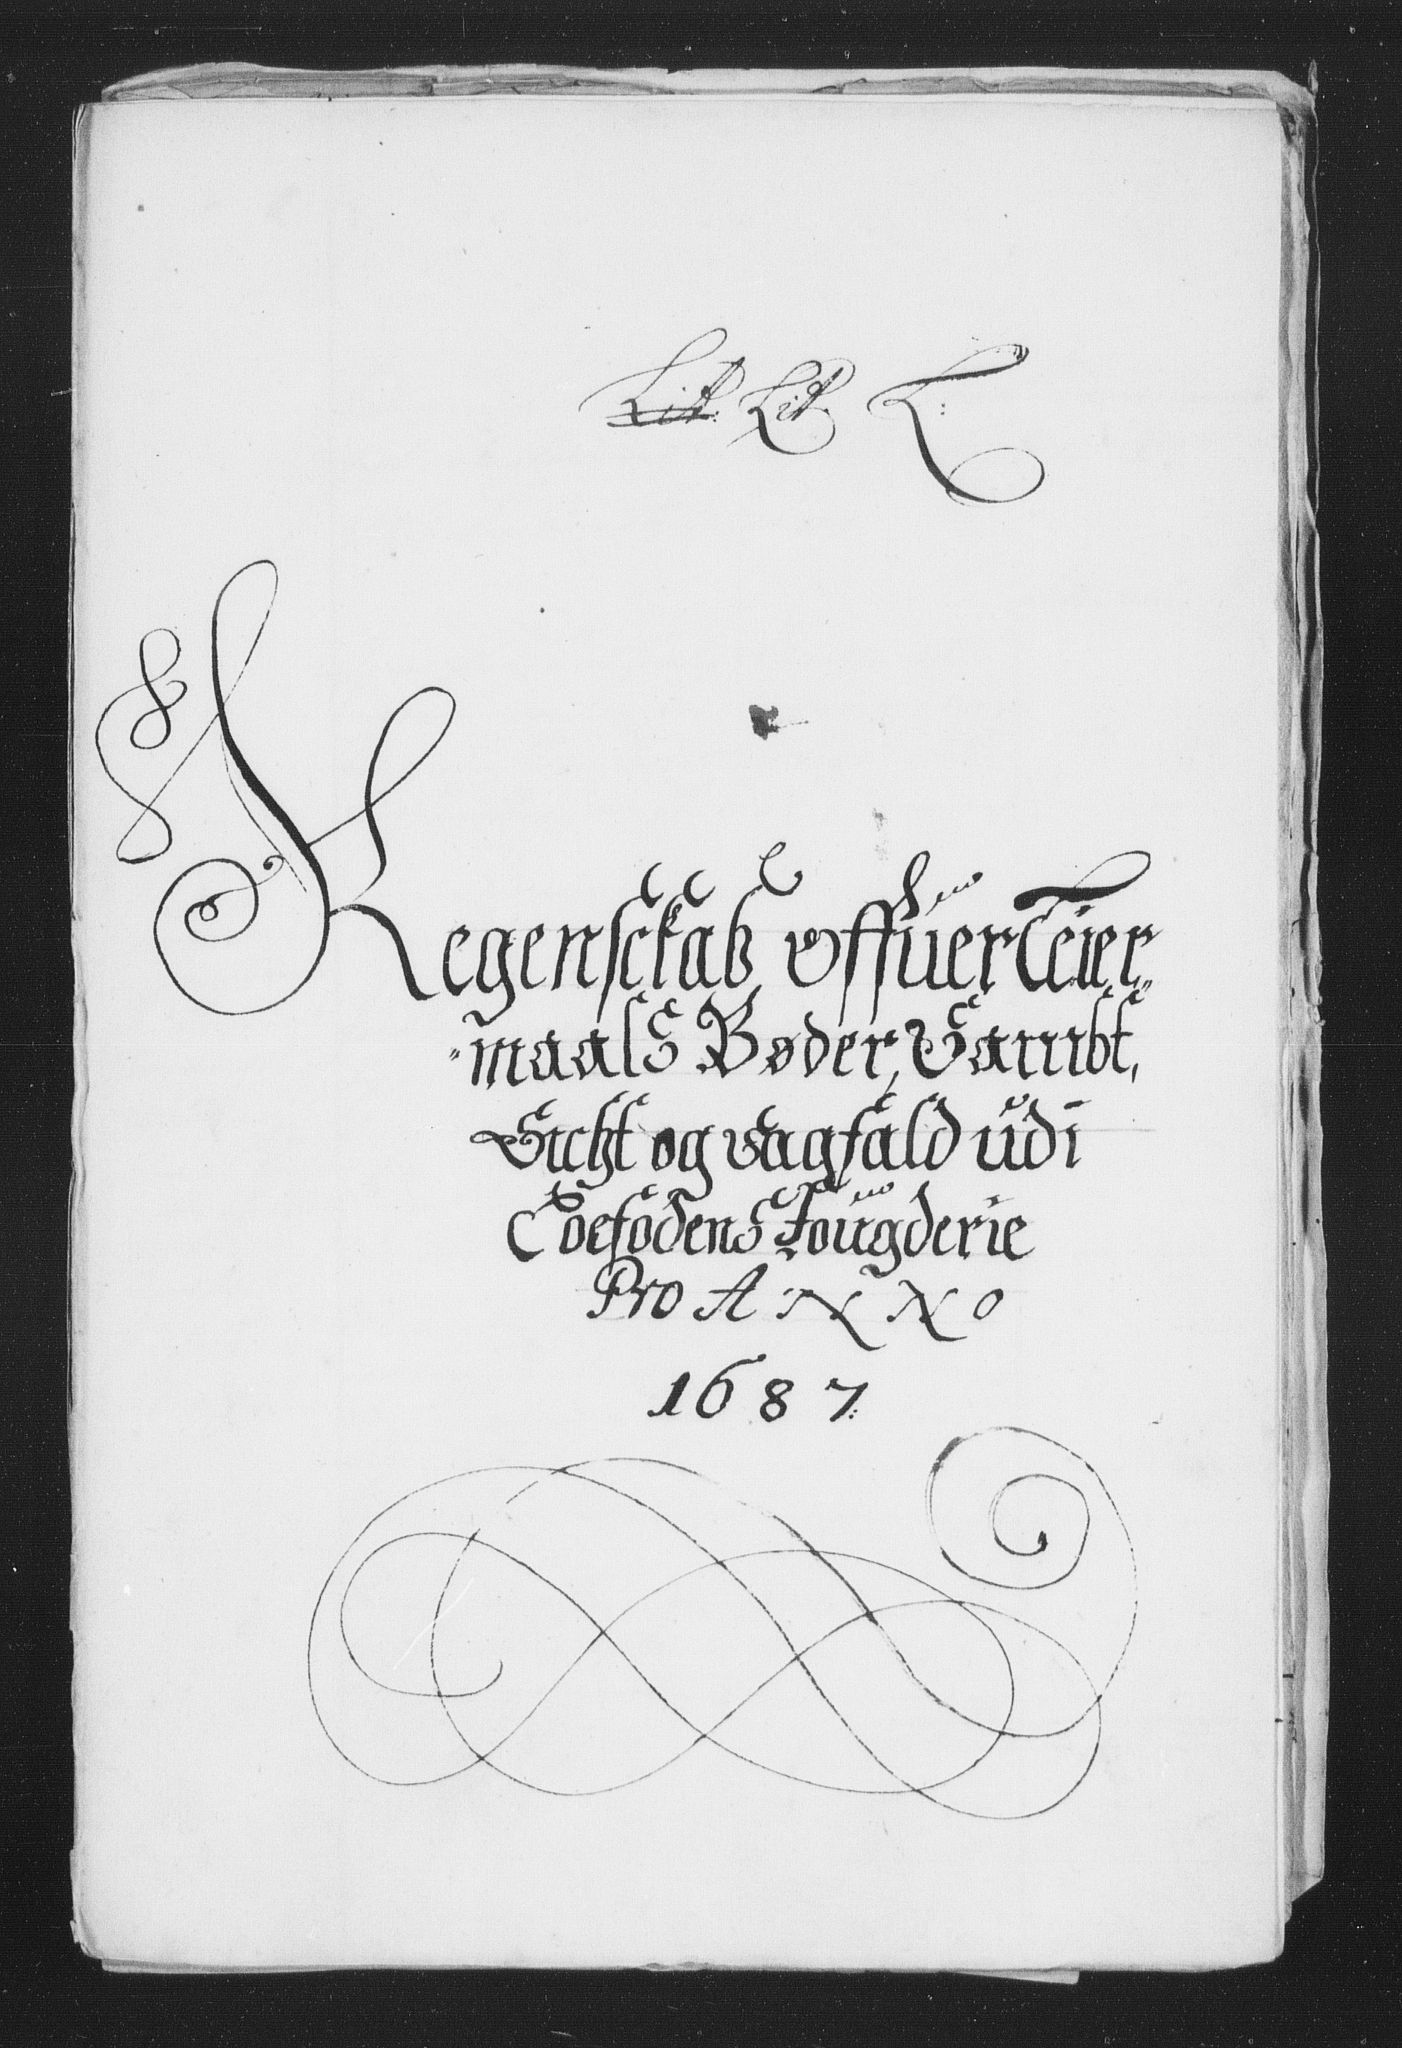 Lit: Lit. L:
Regensckab offuer Leier„
„maals Bøder, Sambt,
Sicht og vagfald udi
Coefodens Fougderie
Pro ANNO
1687: